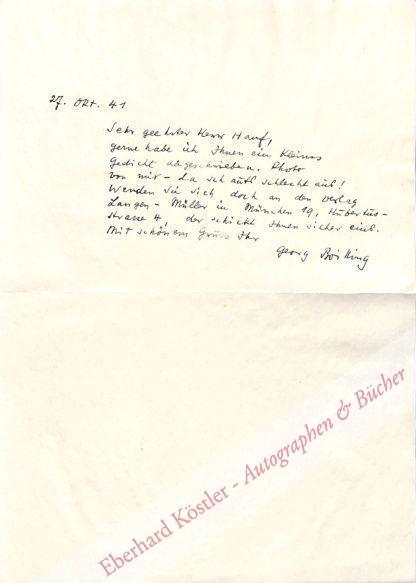 27. Okt. 41
Sehr geehrter Herr Hauf,
gerne habe ich Ihnen ein kleines
Gedicht abgeschrieben. Photo
von mir – da schaut's schlecht aus!
Wenden Sie sich doch an den Verlag
Langen-Müller in München 19, Hubertus-
strasse 4, der schickt Ihnen sicher eins.
Mit schönem Gruss Ihr
Georg Britting
Eberhard Köstler - Autographen & Bücher